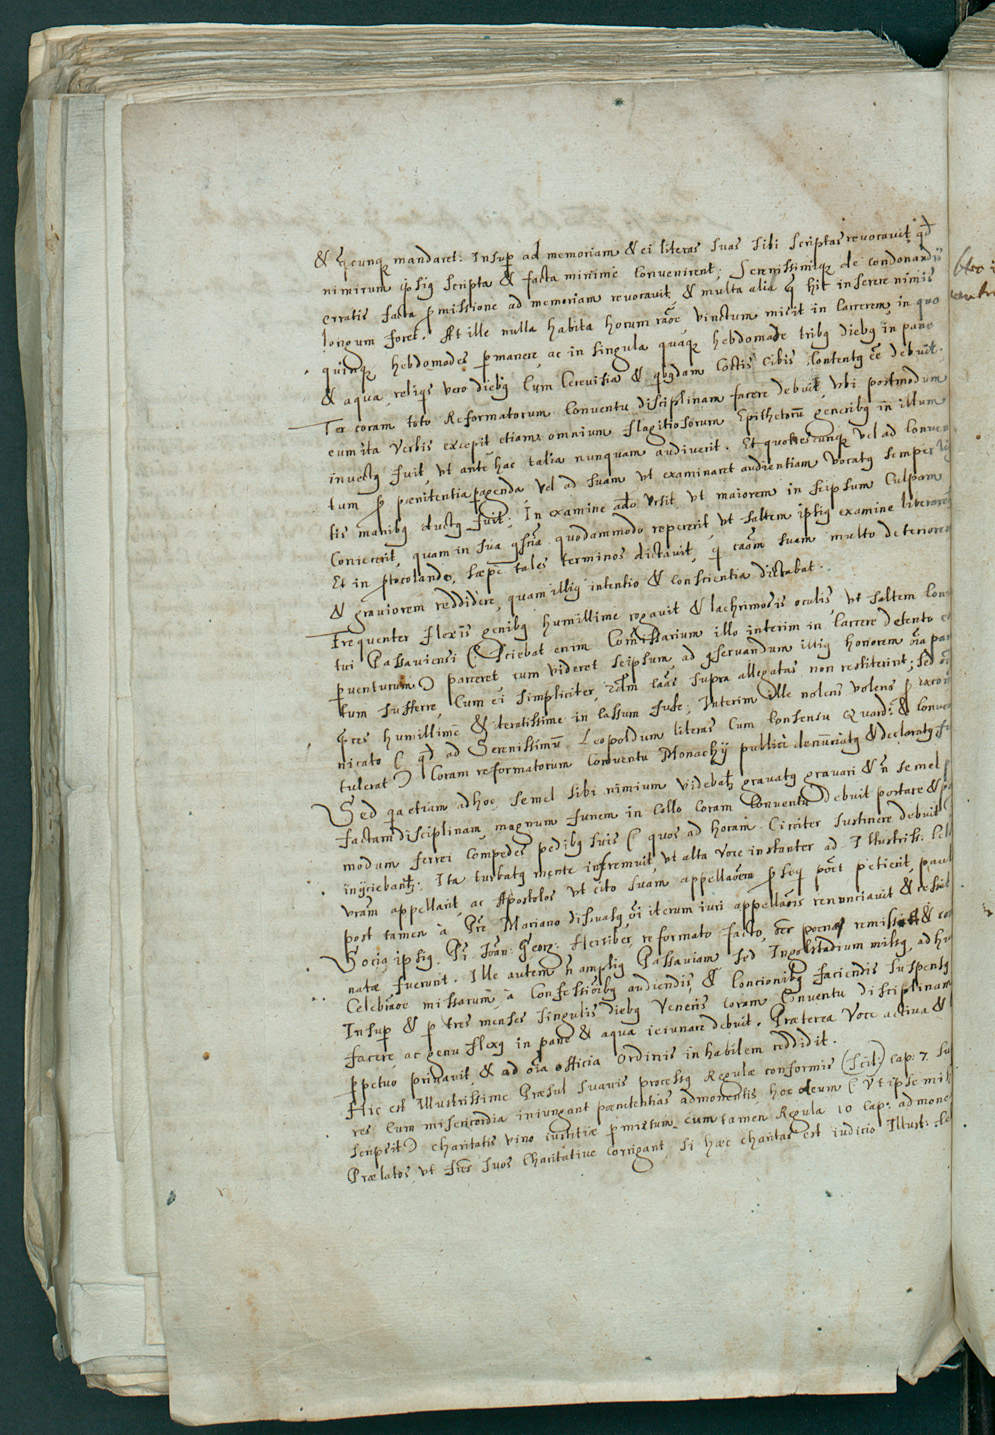 & qcunq mandaret. Insup ad memoriam & ei literas suas sibi scriptas revocavit, qd
nimirum ipsiq scripta & facta minime convenirent; Serenissimiq de condonandis
erratis facta pmissione ad memoriam revocavit, & multa alia q hic inserere nimis
longum foret. At ille nulla habita horum raoe, vinctum misit in carcerem, in quo
quinq hebdomodes pmanere, ac in singula quaq hebdomade tribq diebq in pane
& aqua, reliqs vero diebq cum cerevisia & qbqdam coctis cibis contentq ee debuit.
Ter coram toto Reformatorum conventu disciplinam facere debuit, vbi postmodum
eum ita verbis excepit etiam omnium flagitiosorum Epithetoru generibq in illum
invectq fuit, vt ante hac talia nunquam audiverit. Et quotiescunq vel ad conven
tum p pœnitentia pagenda vel ad suam vt examinaret audientiam vocatq semper
tis manibq ductq fuit; In examine ado vrsit, vt maiorem in seipsum culpam
coniecerit, quam in sua qscia quodammodo repererit, vt saltem ipsiq examine liberare
Et in ptocolando, sæpe tales terminos dictavit, q caom suam multo deteriorem
& graviorem reddidere, quam illiq intentio & conscientia dictabat.
Frequenter flexis genibq humillime rogavit & lachrimosis oculis, vt saltem Con
tui Passaviensi (Sciebat enim Comissarium illo interim in carcere detento
pventurum) parceret, cum videret seipsum, ad qservandum illiq honorem oia pa
tum sufferre, Cum ei simpliciter, supra allegatas non restiterint; sed
pces humillime & iteratissime in cassum fuse; Interim ille nolens volens p
nicato (qd ad Serenissimu Leopoldum literas cum consensu Quard: & conve
tulerat) Coram reformatorum conventu Monachij publice denuciatq & declaratq
Sed q etiam adhoc semel sibi nimium videbat gravatq gravari & n semel
factam disciplinam, magnum funem in collo coram conventu debuit portare &
modum ferrei compedes pedibq suis (quos ad horam circiter sustinere debuit
inijciebant. Ita turbatq mente infremuit, vt alta voce instanter ad Illustriss:
vram appellarit, ac Apostolos vt cito suam appellaoem pseq poet petierit, paul
post tamen a Pre Mariano disvasq, oi iterum iuri appellaois renunciavit & cessit
Sociq ipsiq Pr Joan: Georg: Heriber, reformato facto, poenæ remissæ &
natæ fuerunt. Ille autem n ampliq Passaviam sed Ingolstadium missq, ad
Celebraoe missarum, a Confessioibq audiendis, & Concionibq faciendis suspensq
Insup & p tres menses singulis diebq Veneris coram conventu disciplinam
facere, ac genu flexq in pane & aqua ieiunare debuit. Præterea voce activa &
ppetuo privavit, & ad oia officia ordinis inhabilem reddidit.
Hic est Illustrissime Præsul suavis processq Regulæ conformis (Scil:) cap: 7.
res cum misericordia iniungant pœnitentias admonentis, hoc oleum (Vt ipse mih
scripsit) charitatis vino iustitiæ pmistum, cum tamen Regula 10 cap: admone
Prælatos, vt fres suos charitative corrigant, si hæc charitas est iudicio Illust: